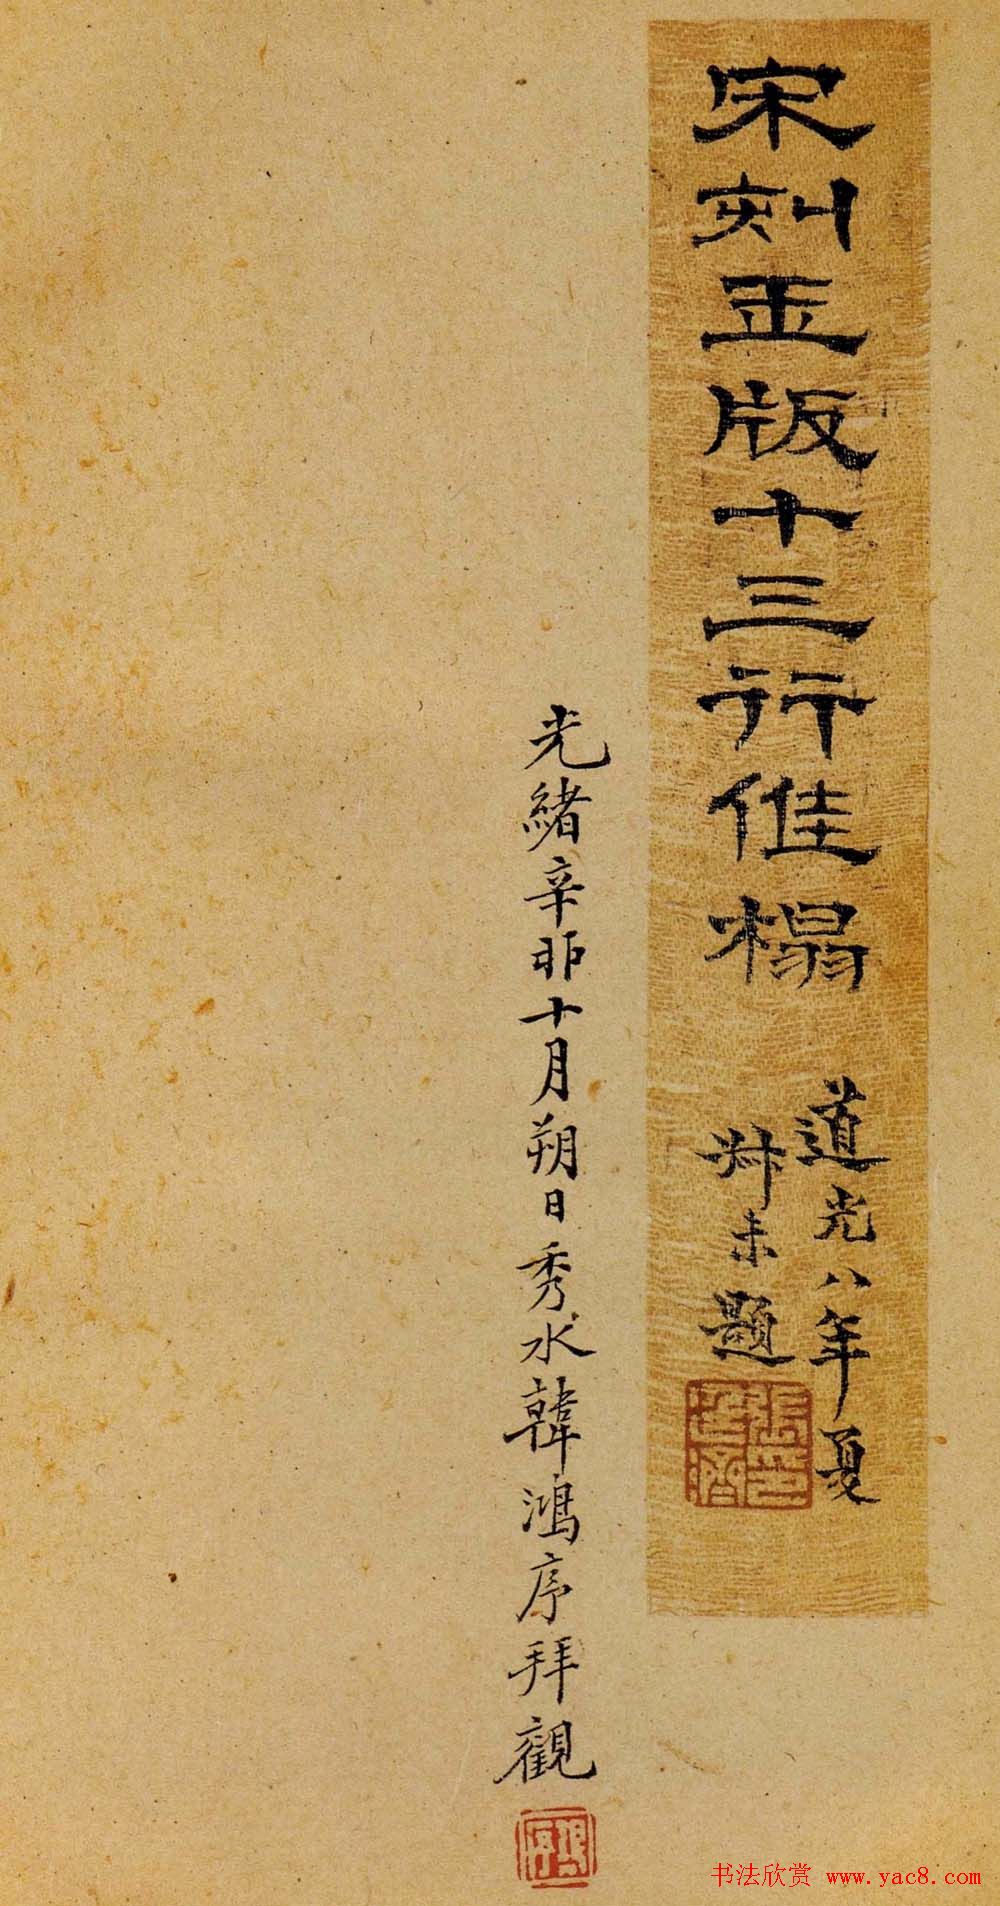 宋刻玉版十三行佳榻
道光八年夏
叔未題
張廷濟印
光緒辛卯十月朔日秀水韓鴻序拜觀
鴻序
书法欣赏 www.yac8.com